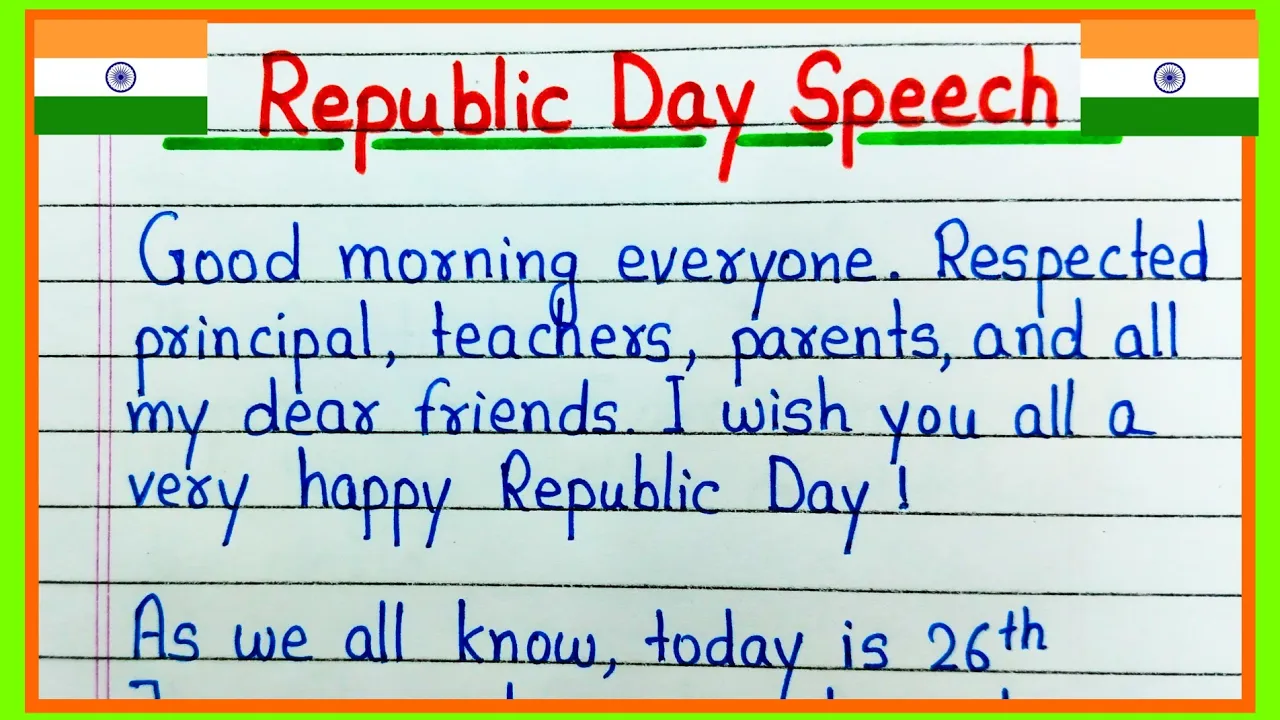 Republic Day Speech
Good morning everyone. Respected
principal, teachers, parents, and all
my dear friends. I wish you all a
very happy Republic Day!
As we all know, today is 26th